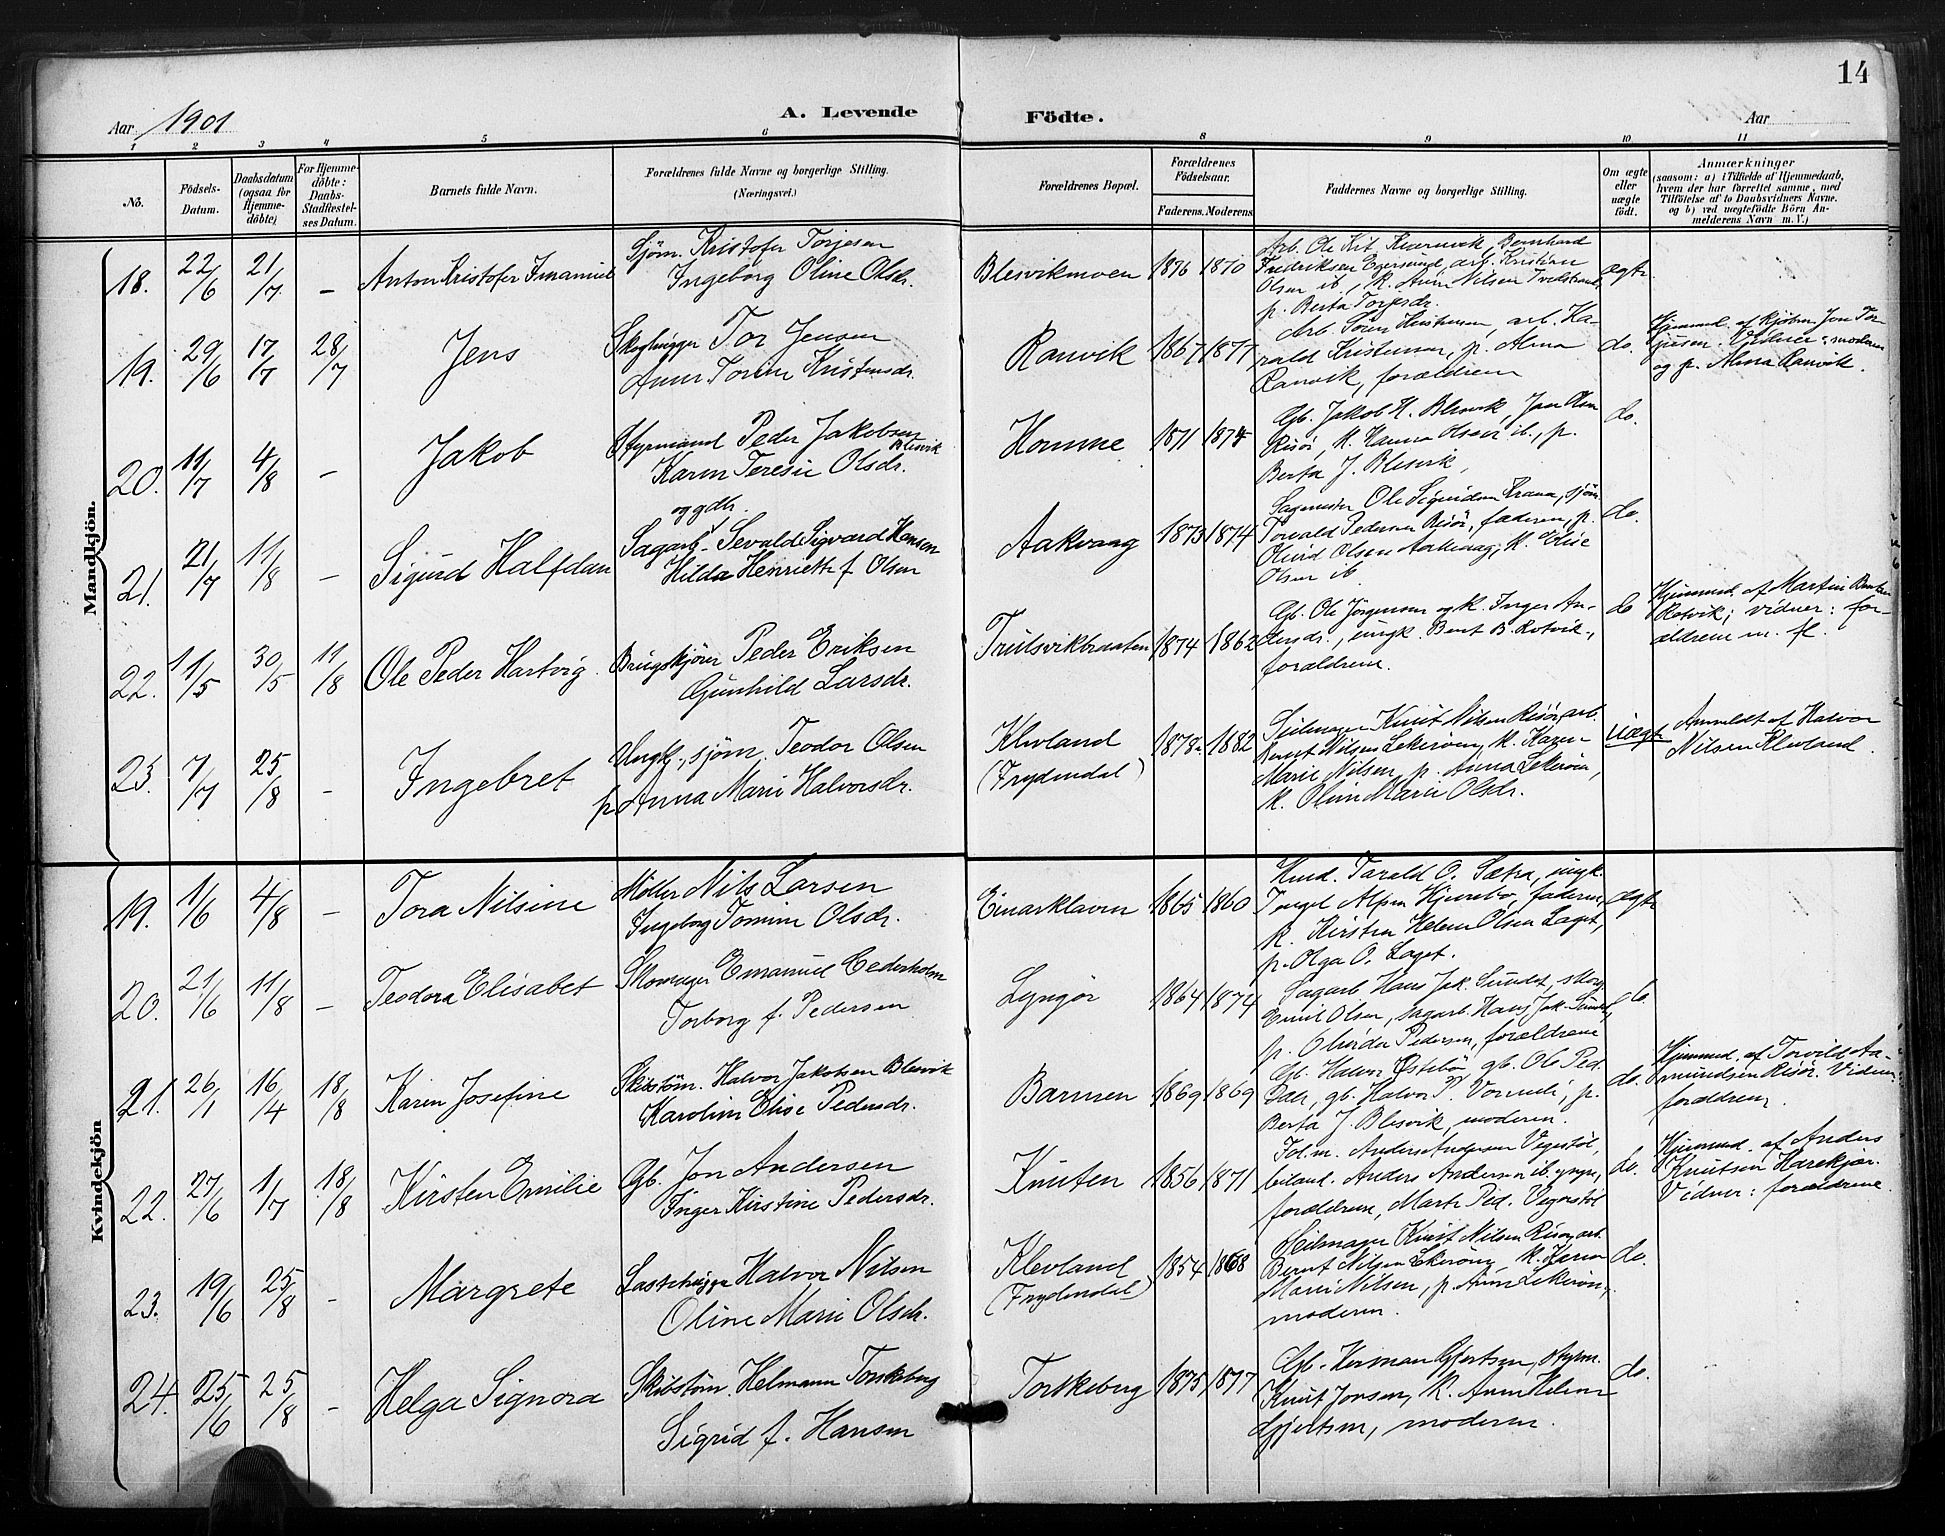 14
Aar 1901
A. Levende Födte.
Aar
1 2 3 4 5 6 8 9 10 11
No.
Födsels-Datum.
Daabsdatum (ogsaa for Hjemmedöbte)
For Hjemmedöbte: Daabs-Stadfestelses Datum.
Barnets fulde Navn.
Forældrenes fulde Navne og borgerlige Stilling. (Næringsvei.)
Forældrenes Bopæl.
Forældrenes Födselsaar.
Faderens. Moderens
Faddernes Navne og borgerlige Stilling.
Om ægte eller uægte födt.
Anmærkninger
(saasom: a) i Tilfælde af Hjemmedaab, hvem der har forrettet samme, med Tilföielse af to Daabsvidners Navne. og b) ved uægtefödte Börn Anmelderens Navn m. V.)
Mandkjön.
18. 22/6 21/7 - Anton Kristofer Imanuel
Sjøm. Kristofer Torjesen
Ingeborg Oline Olsdr.
Blesvikmoen 1876 1870
Arb. Ole Kit. Kvernvik, Bernhard
Fredriksen Egersund, arb. Kristian
Olsen ib., K. Anne Nilsen
p. Berta Torjesdr.
ægte
19. 29/6 17/7 28/7 Jens
Skoghugger Tor Jensen
Anne Tomine Kristensdr.
Ranvik 1867 1877
Arb. Søren Kristensen, arb. Ha-
rald Kristensen, p. Alma
Ranvik, forældrene
do.
Hjemmed. af kjøbm. Jon Tor-
jusen. Vidner: moderen
og p. Alma Ranvik.
20. 11/7 4/8 - Jakob
Styrmand Peder Jakobsen
Blesvik
Karen Teresie Olsdr.
Homme 1871 1874
Gb. Jakob H. Blesvik, Jens Olsen
Risör, K. Hanna Olsen ib., p.
Berta J. Blesvik,
do.
21. 21/7 11/8 - Sigurd Halfdan
og gdh.
Sagarb. Sevald Sigvard Hansen
Hilda Henriette f. Olsen
Aakvaag 1873 1874
Sagmester Ole Sigurdsen Krana, sjöm.
Torvald Pedersen Risör, faderen, p.
Olivid Olsen Aakvaag, K. Elise
Olsen ib.
do.
22. 11/5 30/5 11/8 Ole Peder Hartvig
Brugskjører Peder Eriksen
Gunhild Larsdr.
Trulsvikbraaten 1874 1862
Gb. Ole Jørgensen og K. Inger An-
dersdr., ungk. Bent B. Rotvik,
forældrene.
do
Hjemmed. af Martin Bentsen
Rotvik; vidner: for-
ældrene m. fl.
23. 7/7 25/8 - Ingebret
Ungk., sjøm. Teodor Olsen
p. Anna Marie Halvorsdr.
Klevland
(Frydendal)
1878 1882
Seilmager Knut Nilsen Risör, arb.
Bernt Nilsen Lekerøen, K. Karen
Marie Nilsen, p. Anna Lekerøen,
K. Oline Marie Olsdr.
uægte
Anmeldt af Halvor
Nilsen Klevland
Kvindekjön
19. 1/6 4/8 - Tora Nilsine
Møller Nils Larsen
Ingeborg Tomine Olsdr.
Einarkleven 1865 1860
Hmd. Tarald O. Sætra, ungk.
Tengel Alfsen Hjemebø, faderen,
K. Kirsten Helene Olsen Laget,
p. Olga O. Laget.
ægte
20. 21/6 11/8 - Teodora Elisabet
Skomager Emanuel Cederholm
Torborg f. Pedersen
Lyngør 1864 1874
Sagarb. Hans Jak. Sundet, skog.
Emil Olsen, sagarb. Hans Jak. Sundet,
p. Olivida Pedersen, forældrene
do.
21. 26/1 16/4 18/8 Karen Josefine
Skibstøm. Halvor Jakobsen Blesvik
Karoline Elise Pedersdr.
Barmen 1869 1869
Gb. Halvor Østebö, gb. Ole Ped.
Dale, gb. Halvor P. Vormeli, p.
Berta J. Blesvik, moderen.
do.
Hjemmed. af Torvild Aa-
mundsen Risør. Vidner:
forældrene.
22. 27/6 1/7 18/8 Kirsten Emilie
Gb. Jon Andersen
Inger Kirstine Pedersdr.
Knuten 1856 1871
Fol.m. Anders Andersen Vegestöl,
Anders Andersen ib. yngre,
forældrene, Marte Ped. Vegerstöl
do.
Hjemmed. af Anders
Knutsen Harekjær.
Vidner: forældrene.
23. 19/6 25/8 - Margrete
Lastehugger Halvor Nilsen
Oline Marie Olsdr.
Klevland
(Frydendal)
1854 1868
Seilmager Knut Nilsen Risør, arb.
Bernt Nilsen Lekerøen, K. Karen
Marie Nilsen, p. Anne Lekerøen,
moderen.
do.
24. 25/6 25/8 - Helga Signora
Skibstøm. Helmann Torskeberg
Sigrid f. Hansen
Torskeberg 1875 1877
Gb. Herman Gjertsen, styrm.
Knut Jonsen, K. Anne Helene
Gjertsen, moderen.
do.